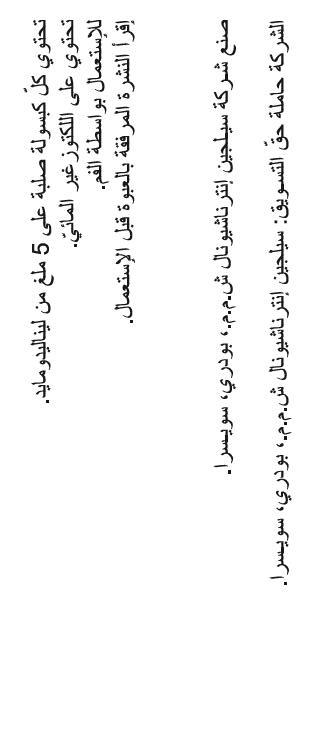 تحتوي كلّ كبسولة صلبة على 5 ملغ من ليناليدومايد.
تحتوي على اللكتوز غير المائيّ.
للإستعمال بواسطة الفم.
إقرأ النشرة المرفقة بالعبوة قبل الإستعمال.
صنع شركة سيلجين إنترناشيونال ش.م.م.، بودري، سويسرا.
الشركة حاملة حقّ التسويق: سيلجين إنترناشيونال ش.م.م.، بودري، سويسرا.